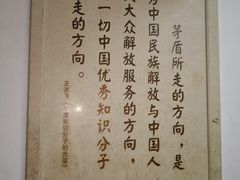 茅盾所走的方向，是
为中国民族解放与中国人
民大众解放服务的方向，
一切中国优秀知识分子
走的方向。
王若飞：《中国知识分子的光荣》